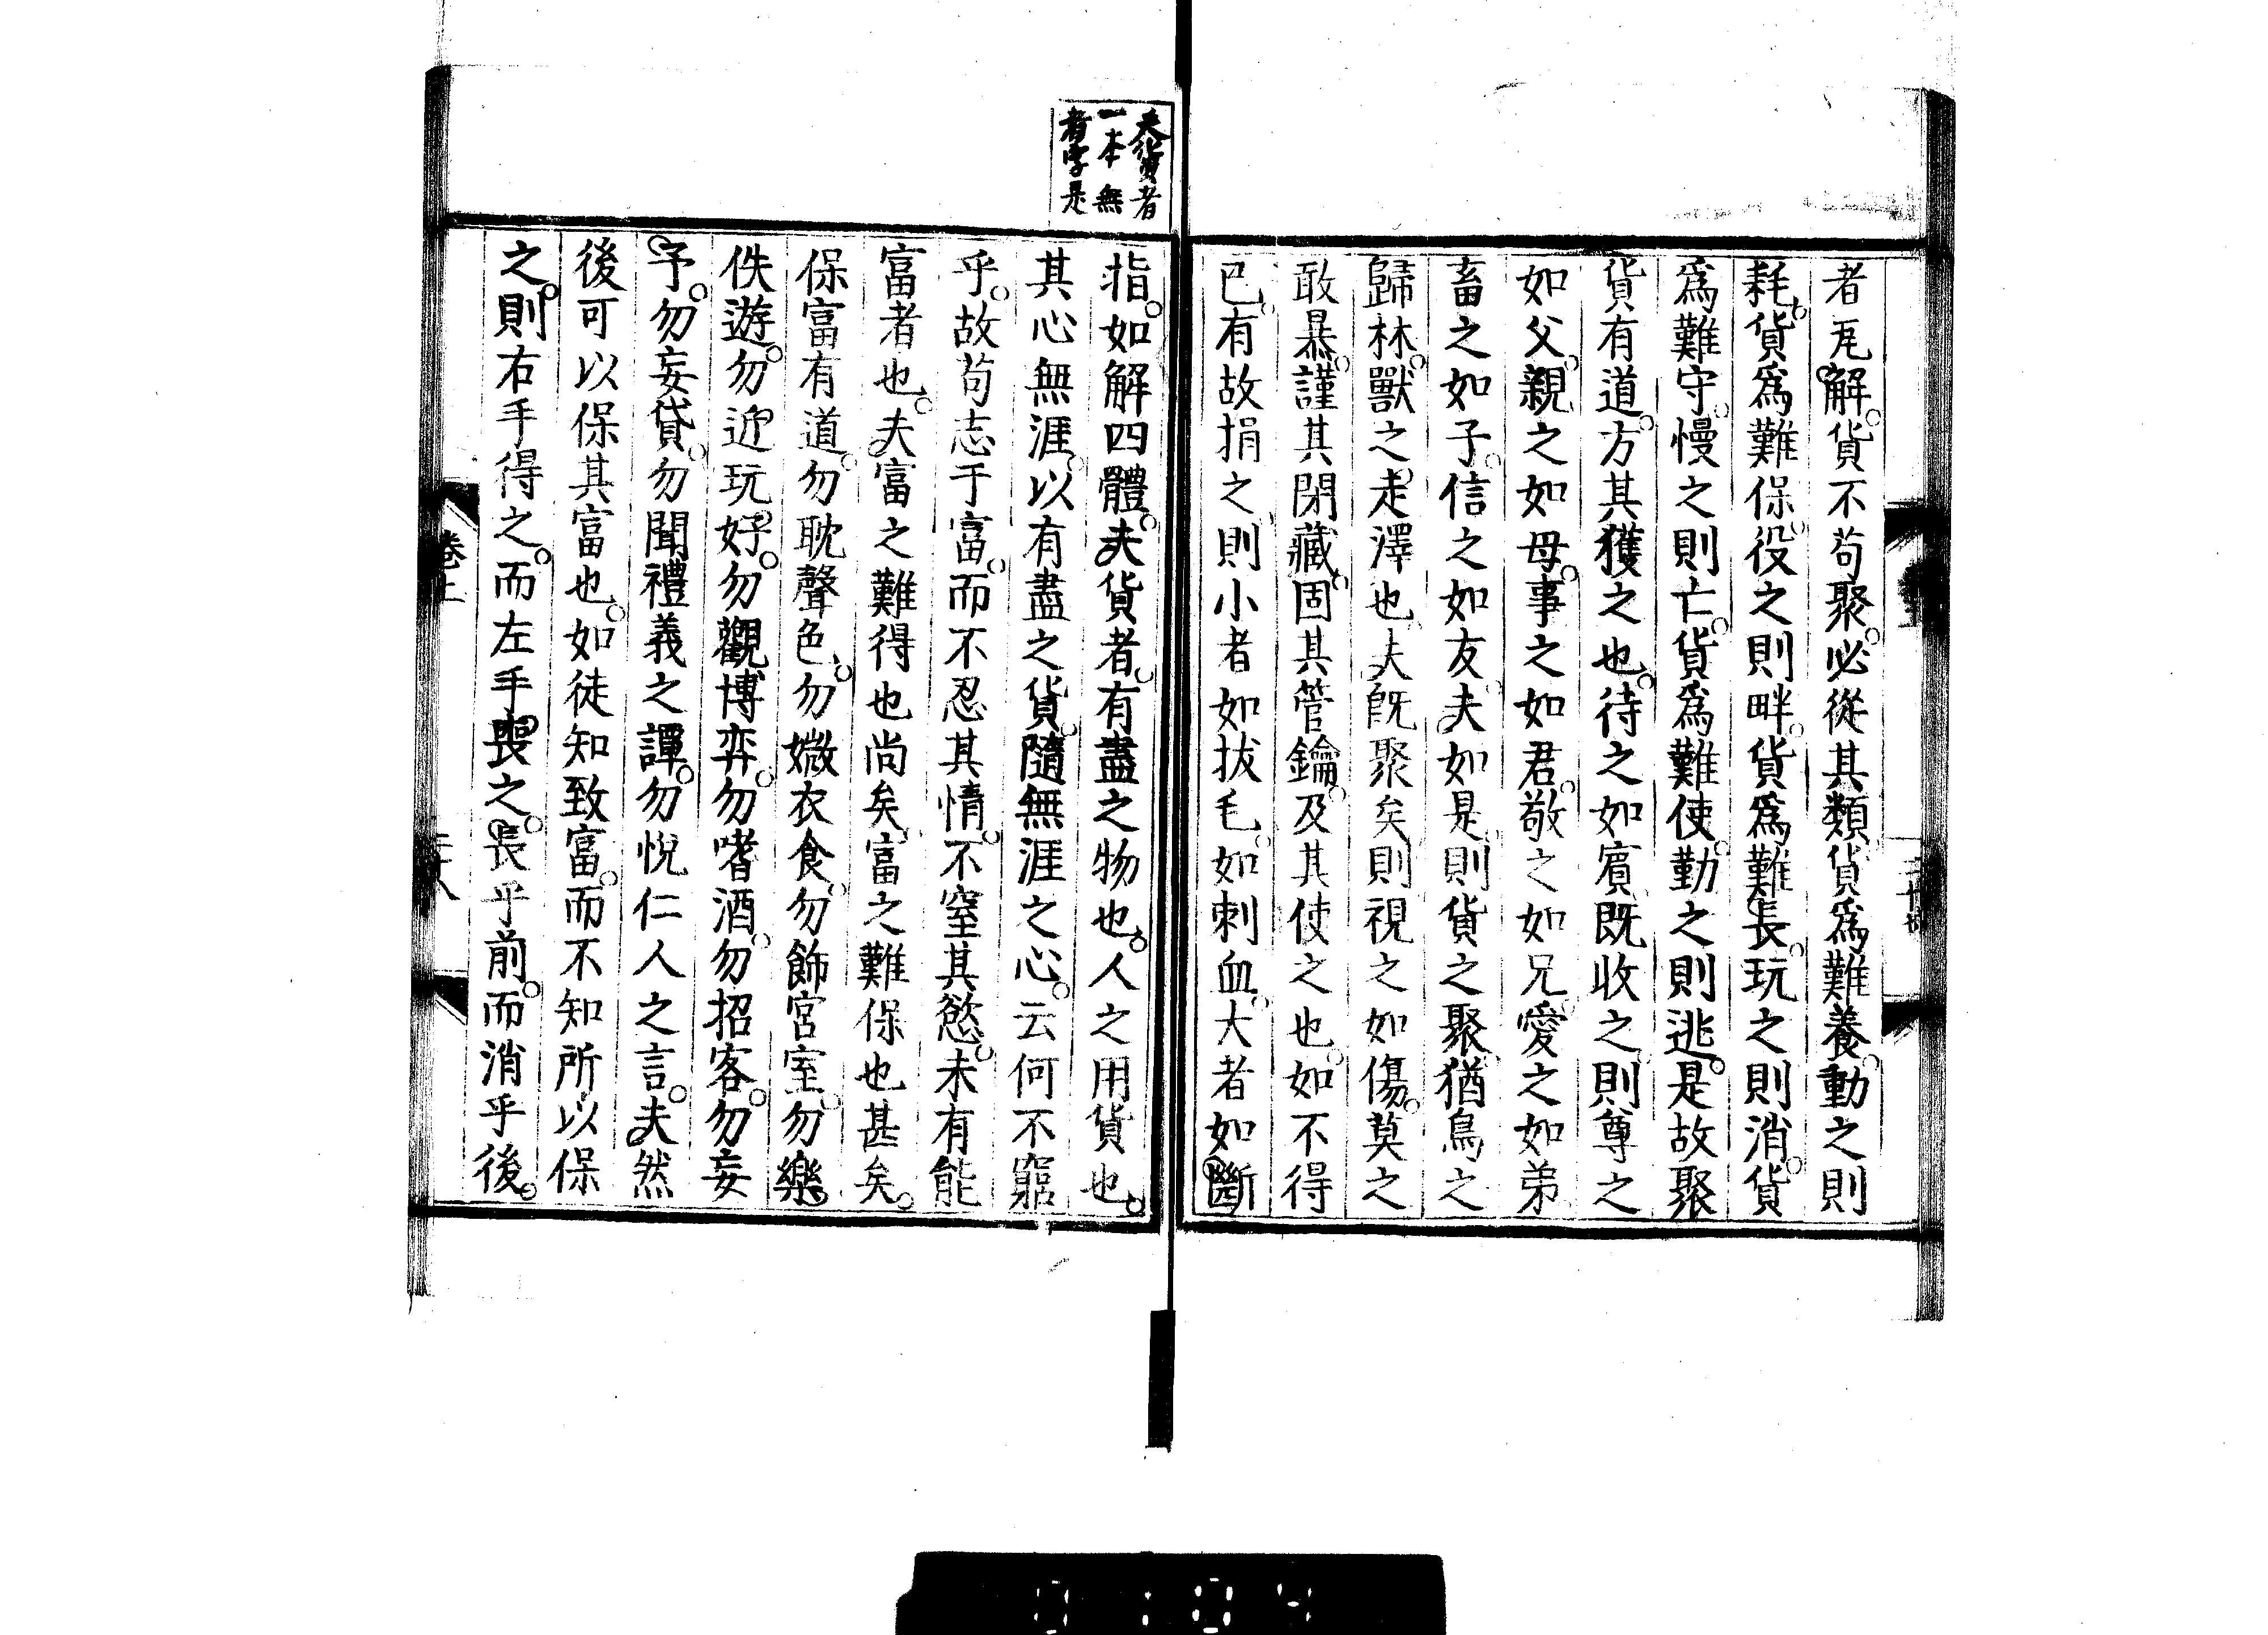 者瓦解。貨不苟聚。必從其類。貨爲難養。動之則
耗。貨爲難保。役之則畔。貨爲難長。玩之則消。貨
爲難守。慢之則亡。貨爲難使。勤之則逃。是故聚
貨有道。方其獲之也。待之如賓。既收之。則尊之
如父。親之如母。事之如君。敬之如兄。愛之如弟。
畜之如子。信之如友。夫如是。則貨之聚。猶鳥之
歸林。獸之走澤也。夫既聚矣。則視之如傷。莫之
敢暴。謹其閉藏。固其管鑰。及其使之也。如不得
已。有故捐之。則小者如拔毛。如刺血。大者如斷
夫貨者
一本無
者字是
指。如解四體。夫貨者。有盡之物也。人之用貨也。
其心無涯。以有盡之貨。隨無涯之心。云何不窮
乎。故苟志于富。而不忍其情。不窒其慾。未有能
富者也。夫富之難得也尚矣。富之難保也甚矣。
保富有道。勿耽聲色。勿媺衣食。勿飾宮室。勿樂
佚遊。勿近玩好。勿觀博弈。勿嗜酒。勿招客。勿妄
予。勿妄貸。勿聞禮義之譚。勿悅仁人之言。夫然
後可以保其富也。如徒知致富。而不知所以保
之。則右手得之。而左手喪之。長乎前。而消乎後。
卷上